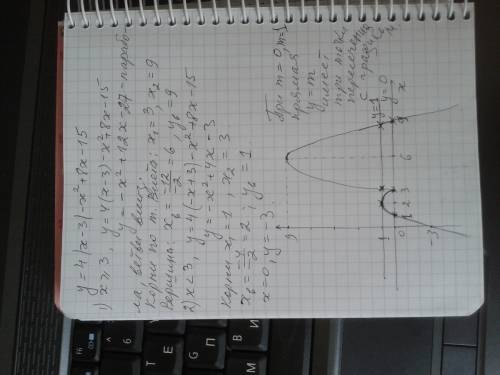 y = 4|x-3| - x²+8x-15
1) x ≥ 3, y = 4(x-3) - x²+8x-15
y = -x²+12x-27 - парабо-
ла, ветви вниз.
Корни по т. Виета. x₁ = 3, x₂ = 9
Вершина: x_b = -12/-2 = 6, y_b = 9
2) x < 3, y = 4(-x+3) - x²+8x-15
y = -x²+4x-3
Корни x₁ = 1, x₂ = 3
x_b = -4/-2 = 2, y_b = 1
x = 0, y = -3.
При m = 0, m = 1
прямая
y = m
имеет
три точки
пересечения
с графиком
y = 1
y = 0
x
9
1
0
-3
1
2
3
6
9